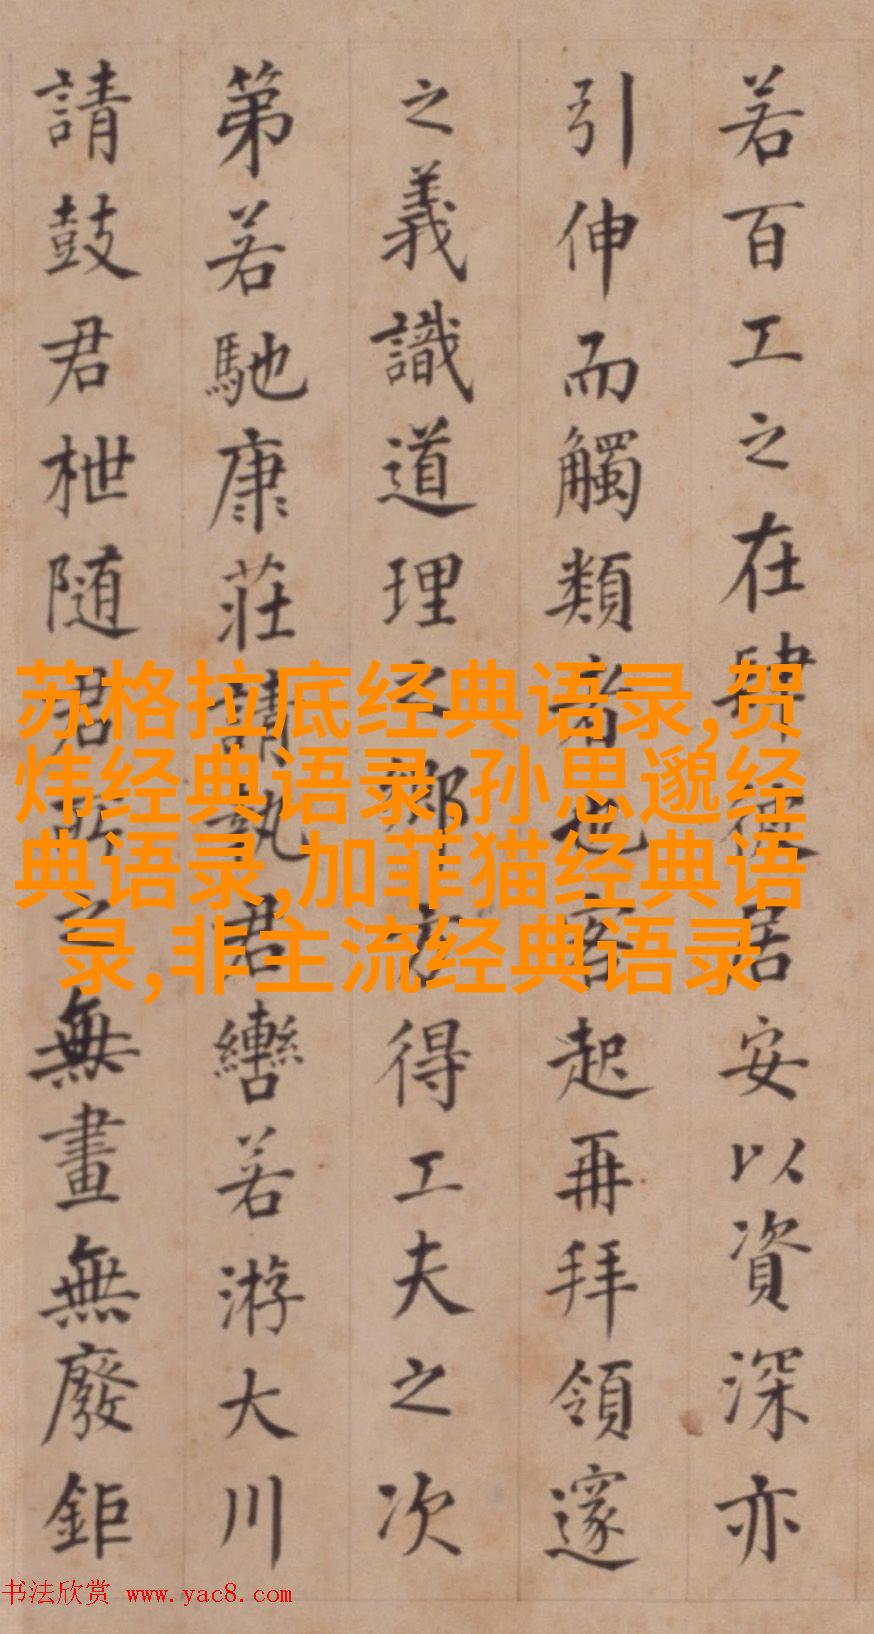 若百工之在肆居安以資深亦
引伸而觸類者也客起再拜領邃
之義識道理之鄉得工夫之次
第若馳康莊請執君轡若游大川
請鼓君枻随君之無畫無廢鉅
苏格拉底经典语录,贺
炜经典语录,孙思邈经
典语录,加菲猫经典语
录,非主流经典语录
书法欣赏 www.yac8.com